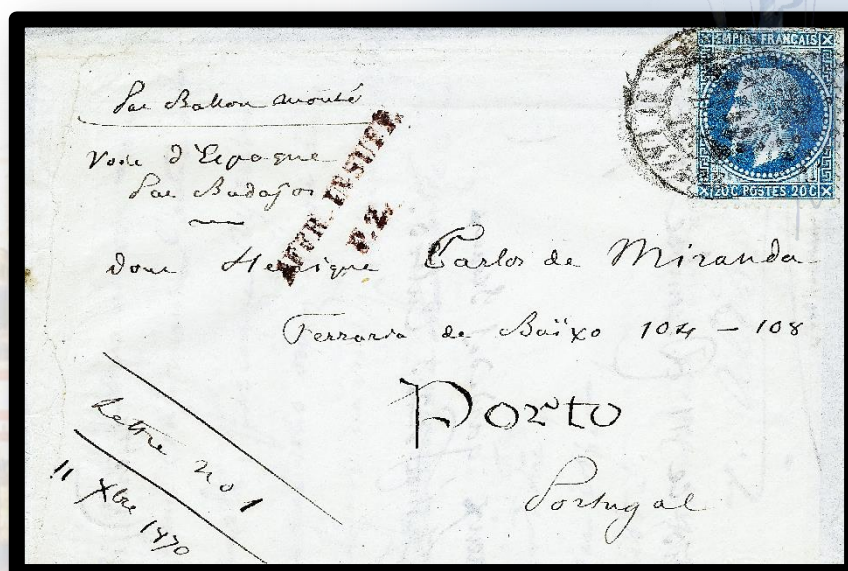 EMPIRE FRANÇAIS
20C POSTES 20C
Par Ballon monté
Voie d'Espagne
Par Badajos
AFFR. INSUFF.
P.2.
dom Henrique Carlos de Miranda
Ferraria de Baïxo 104 - 108
Porto
Portugal
Lettre no 1
11 Xbre 1870